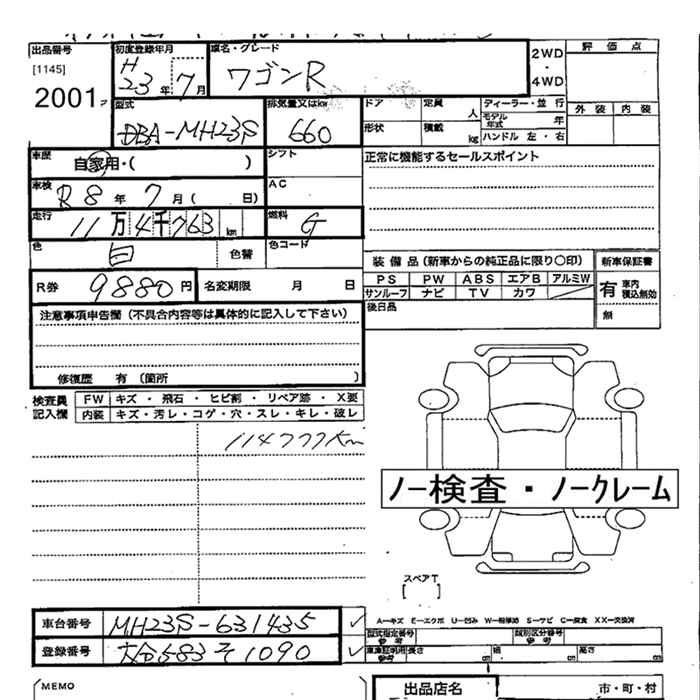 出品番号 初度登録年月 車名・グレード 2WD 評価点
[1145] H23年 7月 ワゴンR ・ 4WD
2001 型式 排気量又はkw ドア 定員 人 ディーラー・並行 外装 内装
DBA-MH23S 660 形状 積載 kg モデル年式 年
ハンドル 左・右
車歴 自家用・( ) シフト 正常に機能するセールスポイント
車検 R8年 7月( 日) AC
走行 11万4千763km 燃料 G
色 白 色替 色コード 装備品(新車からの純正品に限り〇印) 新車保証書
PS PW ABS エアB アルミW 有 車内積込無効
R券 9880円 名変期限 月 日 サンルーフ ナビ TV カワ
後日品 無
注意事項申告欄(不具合内容等は具体的に記入して下さい)
修復歴 有(箇所 )
検査員記入欄 FW キズ・飛石・ヒビ割・リペア跡・X要
内装 キズ・汚レ・コゲ・穴・スレ・キレ・破レ
114777km
ノー検査・ノークレーム
スペアT
[ ]
車台番号 MH23S-631435 ✓ A―キズ E―エクボ U―凹み W―補修跡 S―サビ C―腐食 XX―交換済
型式指定番号 参考 類別区分番号 参考
登録番号 大分583そ1090 ✓ 車庫証明用 参考 長さ 幅 高さ
MEMO 出品店名 市・町・村